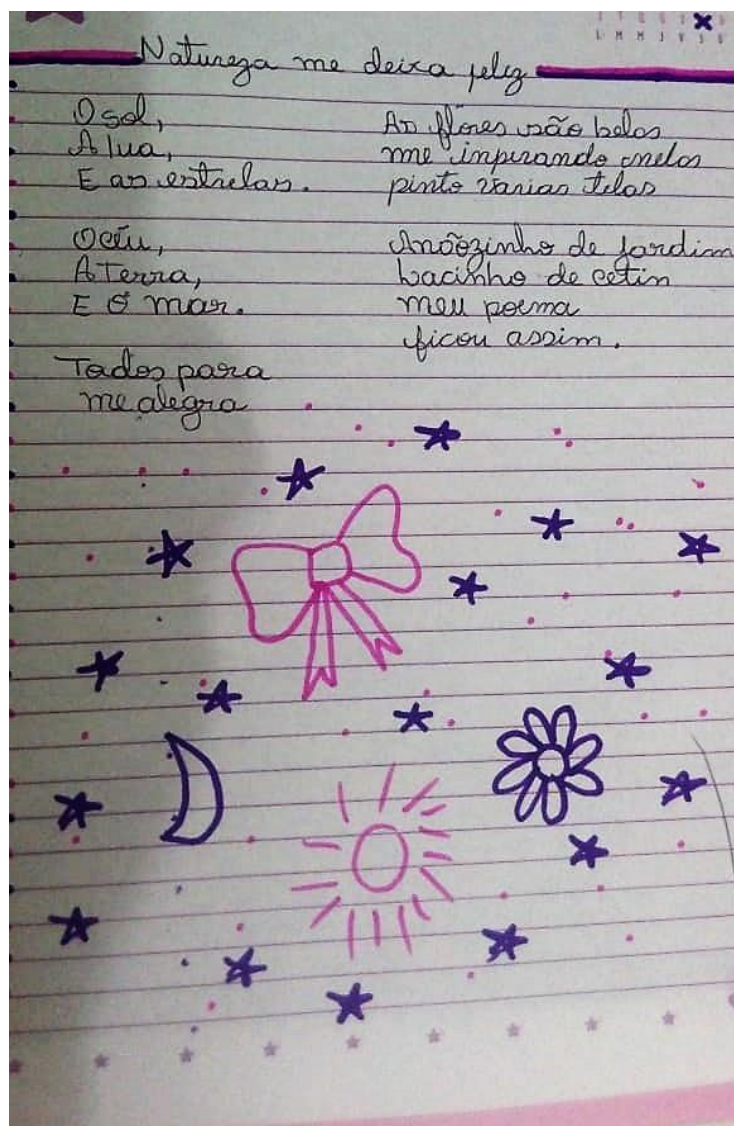 Natureza me deixa feliz
O sol,
A lua,
E as estrelas.
O céu,
A Terra,
E O mar.
Todos para
me alegra
As flores são belas
me inpirando nelas
pinto varias telas
Anõozinho de jardim
lacinho de cetin
meu poema
ficou assim.